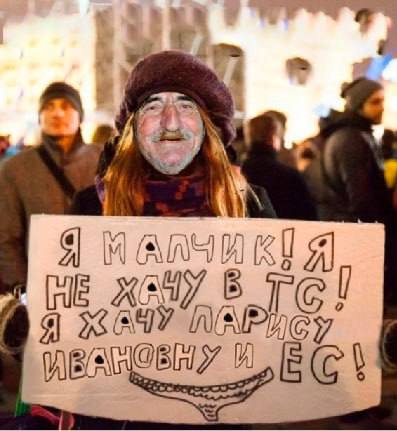 Я МАЛЧИК! Я
НЕ ХАЧУ В ТС!
Я ХАЧУ ЛАРИСУ
ИВАНОВНУ И ЕС!